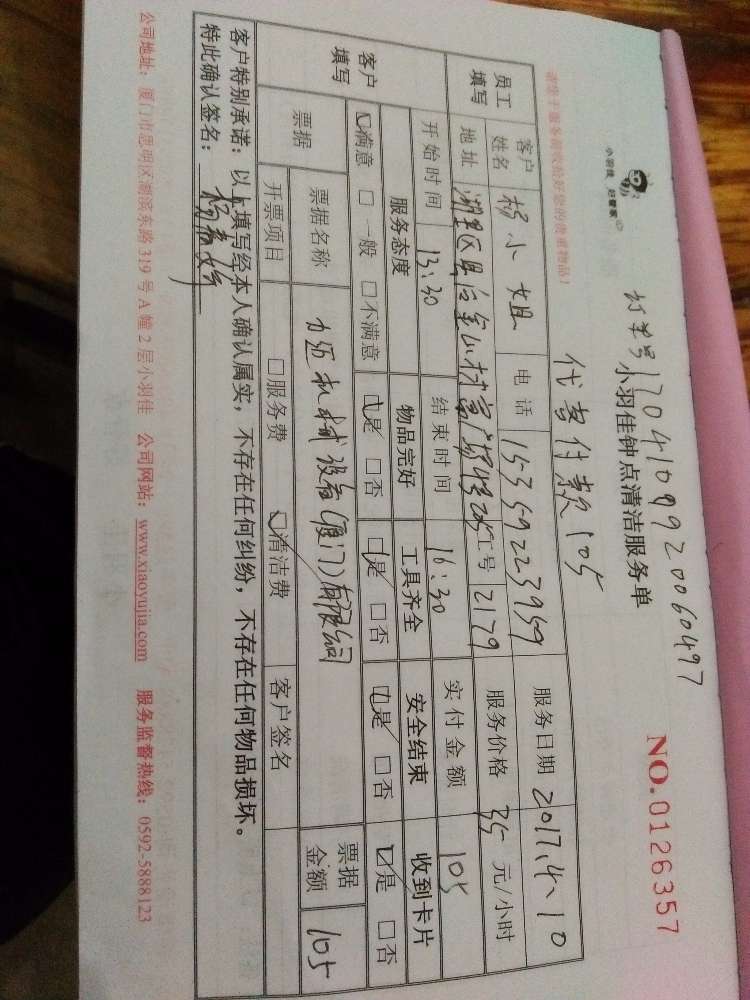 订单号1704109920060497
小羽佳 好管家
小羽佳钟点清洁服务单
NO.0126357
请您于服务前收拾好您的贵重物品!
代收付款105
员工填写 客户姓名 杨小姐 电话 15359223959 服务日期 2017.4.10
地址 湖里区 金山 工号 2179 服务价格 35 元/小时
开始时间 13:30 结束时间 16:30 实付金额 105
客户填写 服务态度 物品完好 工具齐全 安全结束 收到卡片
☑满意 □一般 □不满意 ☑是 □否 ☑是 □否 ☑是 □否 ☑是 □否
票据 票据名称 机械设备(厦门)有限公司 票据金额 105
开票项目 □服务费 ☑清洁费 客户签名
客户特别承诺:以上填写经本人确认属实,不存在任何纠纷,不存在任何物品损坏。
特此确认签名:
公司地址:厦门市思明区湖滨东路319号A幢2层小羽佳 公司网站:www.xiaoyujia.com 服务监督热线:0592-5888123